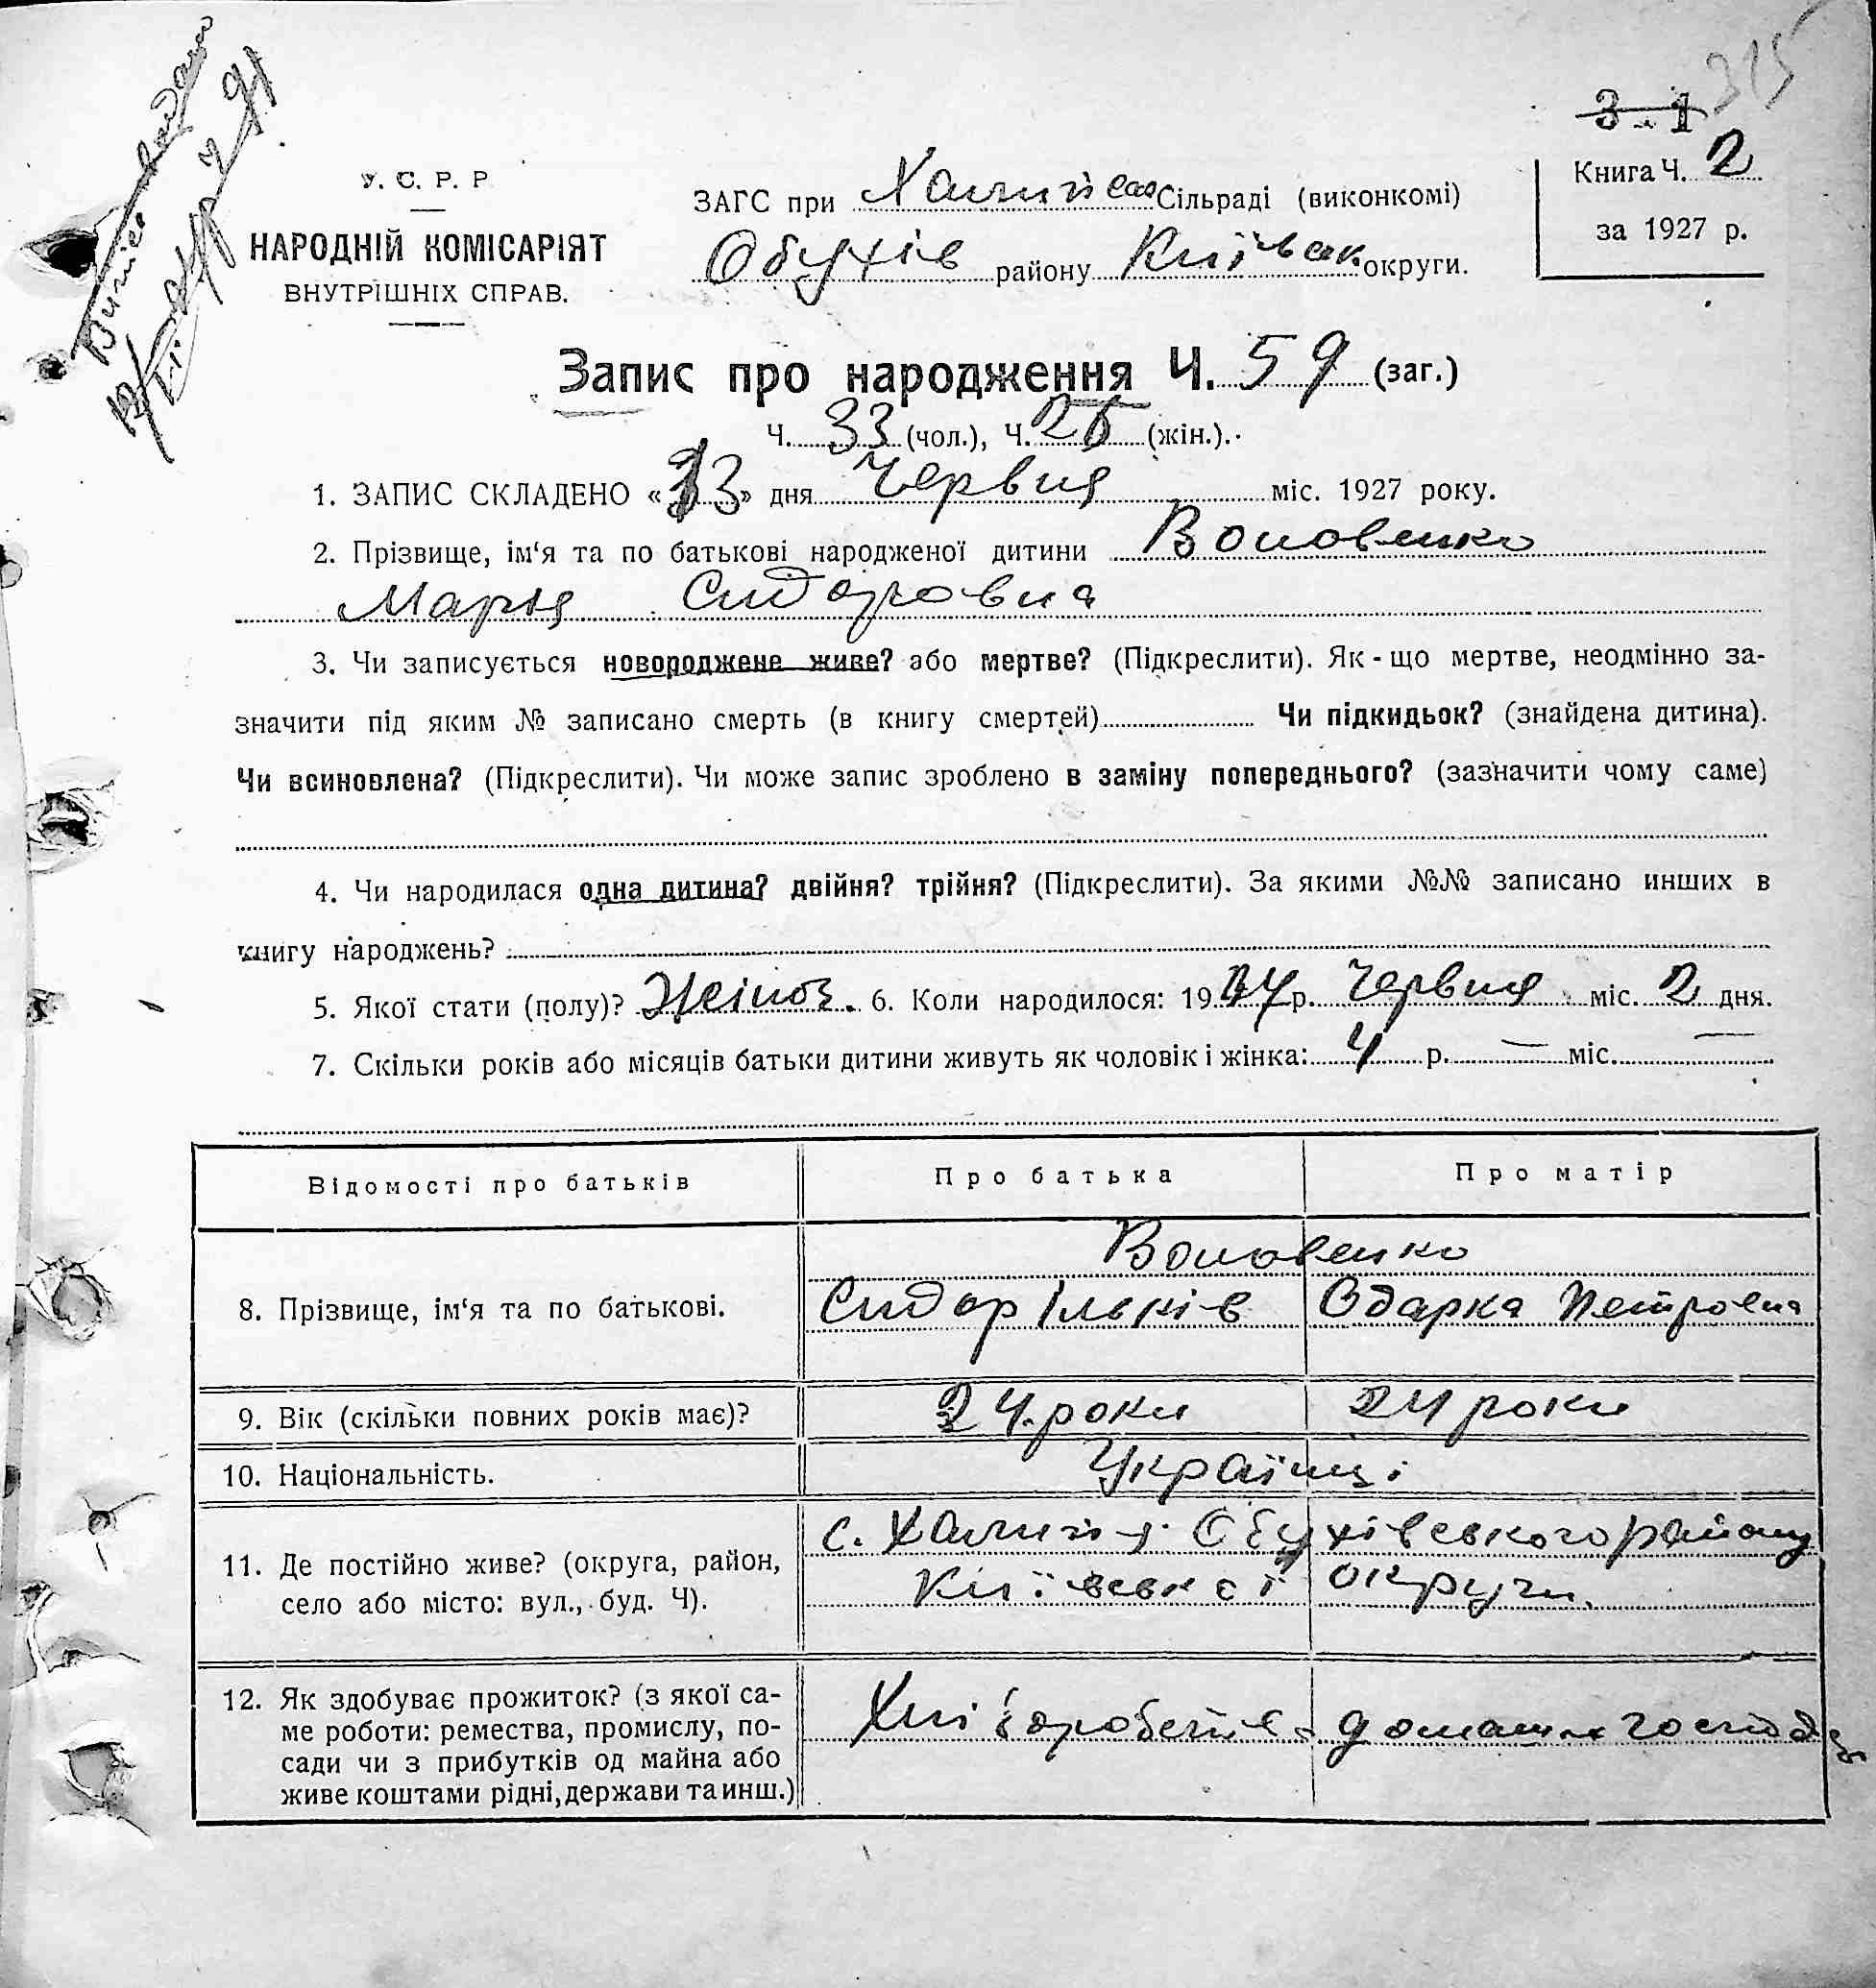 315
3-1
Витяг видан
У. С. Р. Р.
НАРОДНІЙ КОМІСАРІЯТ
ВНУТРІШНІХ СПРАВ.
ЗАГС при Халипсь Сільраді (виконкомі)
Обухів району Київськ округи.
Книга Ч. 2
за 1927 р.
Запис про народження Ч. 59 (заг.)
Ч. 33 (чол.), Ч. 26 (жін.).
1. ЗАПИС СКЛАДЕНО «13» дня Червня міс. 1927 року.
2. Прізвище, ім'я та по батькові народженої дитини Воловенко
Марія Сидоровна
3. Чи записується новороджене живе? або мертве? (Підкреслити). Як-що мертве, неодмінно за-
значити під яким № записано смерть (в книгу смертей) Чи підкидьок? (знайдена дитина).
Чи всиновлена? (Підкреслити). Чи може запис зроблено в заміну попереднього? (зазначити чому саме)
4. Чи народилася одна дитина? двійня? трійня? (Підкреслити). За якими №№ записано инших в
книгу народжень?
5. Якої стати (полу)? Жіноч. 6. Коли народилося: 1927 р. Червня міс. 2 дня.
7. Скільки років або місяців батьки дитини живуть як чоловік і жінка: 4 р. — міс. —
Відомості про батьків Про батька Про матір
Воловенко
8. Прізвище, ім'я та по батькові. Сидор Ільків Одарка Петровна
9. Вік (скільки повних років має)? 24 роки 24 роки
10. Національність. Українці
11. Де постійно живе? (округа, район,
село або місто: вул., буд. Ч).
с. Халипя Обухівського району
Київської округи.
12. Як здобуває прожиток? (з якої са-
ме роботи: ремества, промислу, по-
сади чи з прибутків од майна або
живе коштами рідні, держави та инш.)
Хліборобство домашн господ